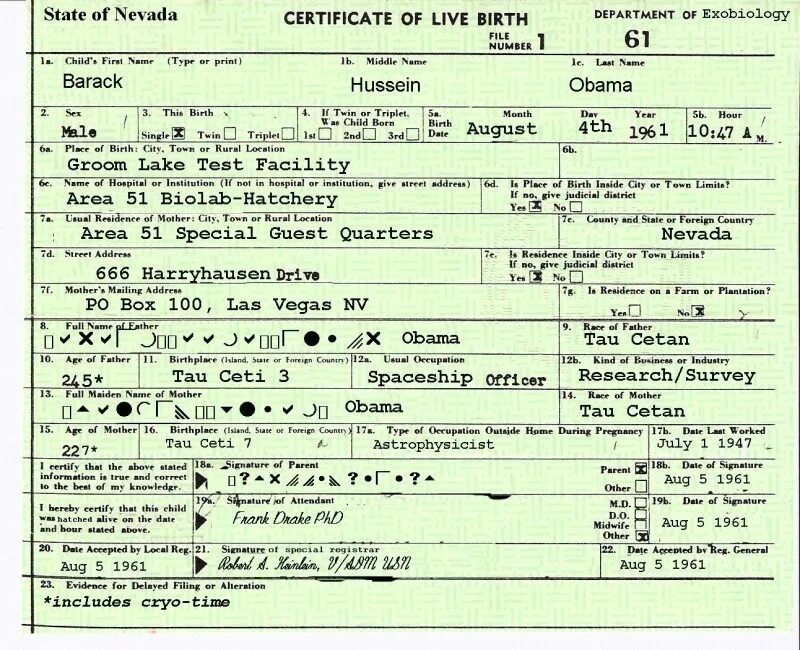 State of Nevada
CERTIFICATE OF LIVE BIRTH
DEPARTMENT OF Exobiology
FILE NUMBER 1 61
1a. Child's First Name (Type or print) 1b. Middle Name 1c. Last Name
Barack Hussein Obama
2. Sex 3. This Birth 4. If Twin or Triplet, Was Child Born 5a. Birth Date Month Day Year 5b. Hour
Male Single X Twin Triplet 1st 2nd 3rd August 4th 1961 10:47 A M.
6a. Place of Birth: City, Town or Rural Location 6b.
Groom Lake Test Facility
6c. Name of Hospital or Institution (If not in hospital or institution, give street address) 6d. Is Place of Birth Inside City or Town Limits? If no, give judicial district
Area 51 Biolab-Hatchery Yes X No
7a. Usual Residence of Mother: City, Town or Rural Location 7c. County and State or Foreign Country
Area 51 Special Guest Quarters Nevada
7d. Street Address 7e. Is Residence Inside City or Town Limits? If no, give judicial district
666 Harryhausen Drive Yes X No
7f. Mother's Mailing Address 7g. Is Residence on a Farm or Plantation?
PO Box 100, Las Vegas NV Yes No X
8. Full Name of Father 9. Race of Father
Obama Tau Cetan
10. Age of Father 11. Birthplace (Island, State or Foreign Country) 12a. Usual Occupation 12b. Kind of Business or Industry
245* Tau Ceti 3 Spaceship Officer Research/Survey
13. Full Maiden Name of Mother 14. Race of Mother
Obama Tau Cetan
15. Age of Mother 16. Birthplace (Island, State or Foreign Country) 17a. Type of Occupation Outside Home During Pregnancy 17b. Date Last Worked
227* Tau Ceti 7 Astrophysicist July 1 1947
I certify that the above stated information is true and correct to the best of my knowledge. 18a. Signature of Parent Parent X Other 18b. Date of Signature
Aug 5 1961
I hereby certify that this child was hatched alive on the date and hour stated above. 19a. Signature of Attendant M.D. D.O. Midwife Other X 19b. Date of Signature
Frank Drake PhD Aug 5 1961
20. Date Accepted by Local Reg. 21. Signature of special registrar 22. Date Accepted by Reg. General
Aug 5 1961 Robert A. Heinlein, V/ADM USN Aug 5 1961
23. Evidence for Delayed Filing or Alteration
*includes cryo-time